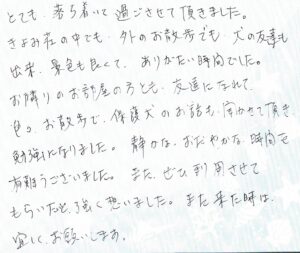 とても、落ち着いて過ごさせて頂きました。
きよみ荘の中でも、外のお散歩でも、犬の友達も
出来、景色も良くて、ありがたい時間でした。
お隣りのお部屋の方とも、友達になれて、
色々お散歩で、保護犬のお話も聞かせて頂き、
勉強になりました。静かな、おだやかな、時間を
有難うございました。また、ぜひ利用させて
もらいたいと強く想いました。また来た時は、
宜しくお願いします。